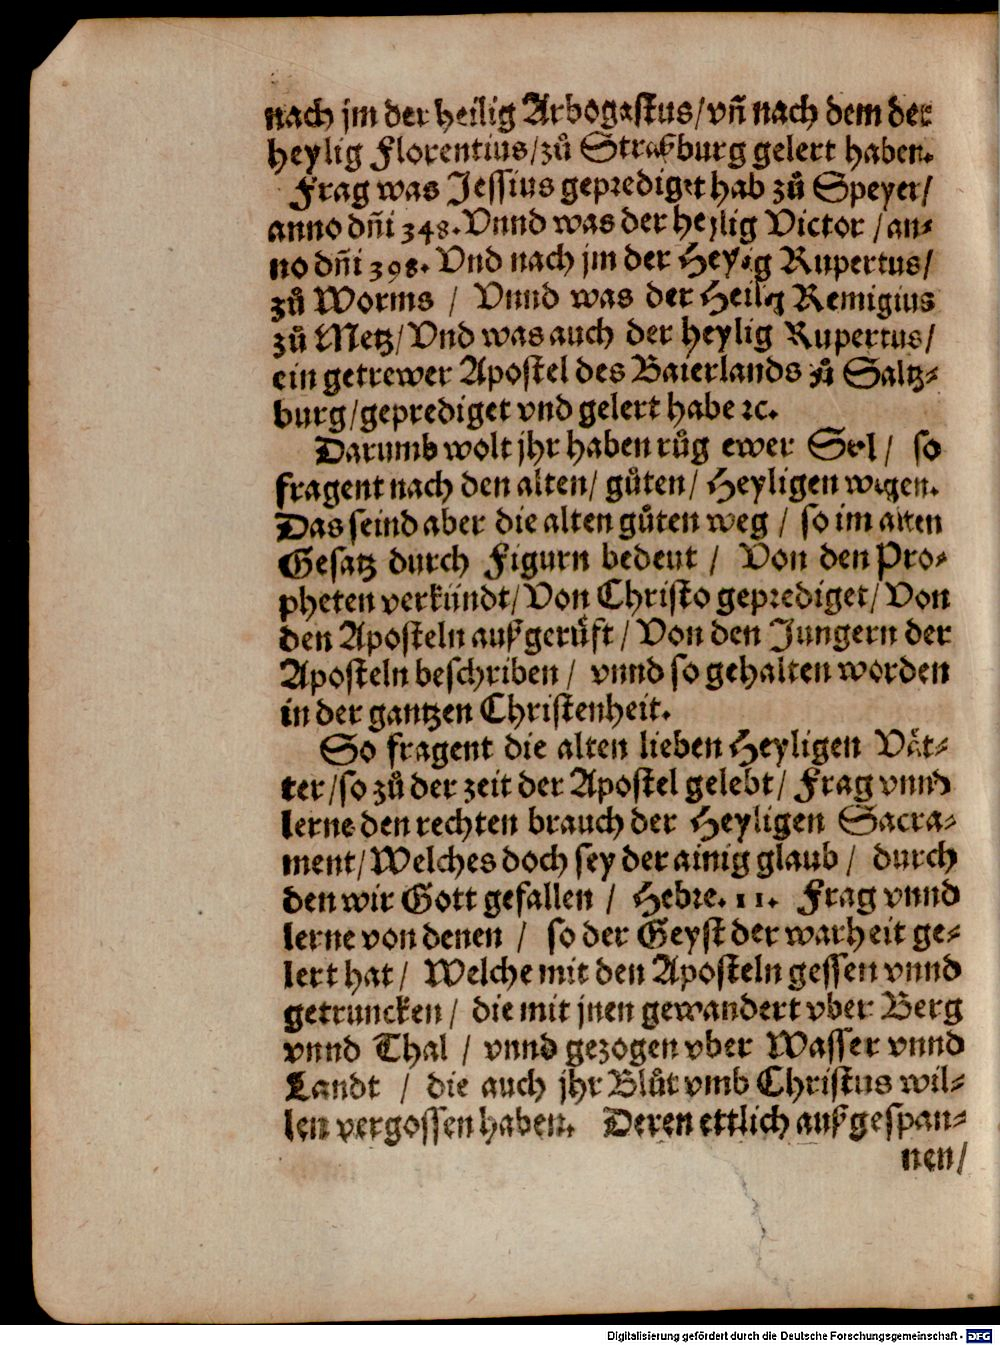 nach jm der heilig Arbogastus/vñ nach dem der
heylig Florentius/zů Straßburg gelert haben.
Frag was Jessius geprediget hab zů Speyer/
anno dñi 348. Vnnd was der heylig Victor /an⸗
no dñi 398. Vnd nach jm der Heylig Rupertus/
zů Worms / Vnnd was der Heilig Remigius
zů Metz/Vnd was auch der heylig Rupertus/
ein getrewer Apostel des Baierlands zů Saltz⸗
burg/geprediget vnd gelert habe ꝛc.
Darumb wolt jhr haben růg ewer Sel/ so
fragent nach den alten/ gůten/ Heyligen wegen.
Das seind aber die alten gůten weg / so im alten
Gesatz durch Figurn bedeut / Von den Pro⸗
pheten verkündt/Von Christo geprediget/Von
den Aposteln außgerůfft/Von den Jungern der
Aposteln beschriben/ vnnd so gehalten worden
in der gantzen Christenheit.
So fragent die alten lieben Heyligen Vät⸗
ter/so zů der zeit der Apostel gelebt/ Frag vnnd
lerne den rechten brauch der Heyligen Sacra⸗
ment/Welches doch sey der ainig glaub / durch
den wir Gott gefallen / Hebre. 11. Frag vnnd
lerne von denen / so der Geyst der warheit ge⸗
lert hat/ Welche mit den Aposteln gessen vnnd
getruncken/ die mit jnen gewandert vber Berg
vnnd Thal / vnnd gezogen vber Wasser vnnd
Landt / die auch jhr Blůt vmb Christus wil⸗
len vergossen haben. Deren ettlich außgespan⸗
nen/
Digitalisierung gefördert durch die Deutsche Forschungsgemeinschaft - DFG